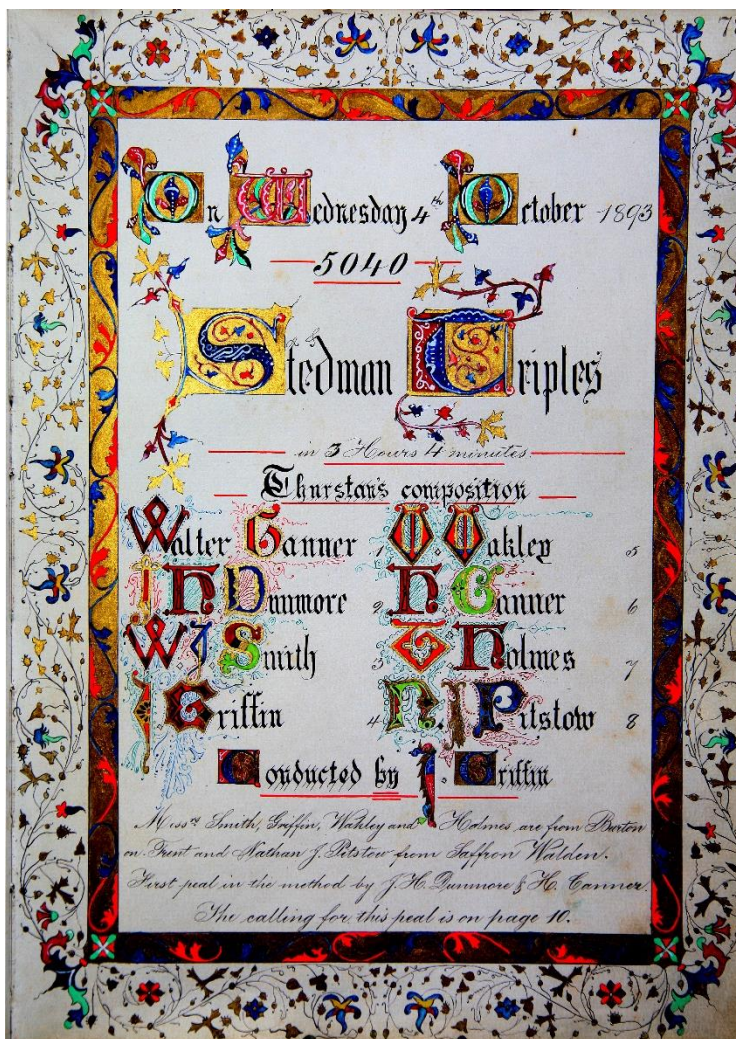 On Wednesday 4th October 1893
5040
Stedman Triples
in 3 Hours 4 minutes.
Thurstan's composition
Walter Canner 1 W. Wakley 5
J H Dunmore 2 H Canner 6
W J Smith 3 Holmes 7
J Griffin 4 N. J Pitstow 8
Conducted by J. Griffin
Messrs Smith, Griffin, Wakley and Holmes are from Burton
on Trent and Nathan J. Pitstow from Saffron Walden.
First peal in the method by J. H. Dunmore & H. Canner.
The calling for this peal is on page 10.